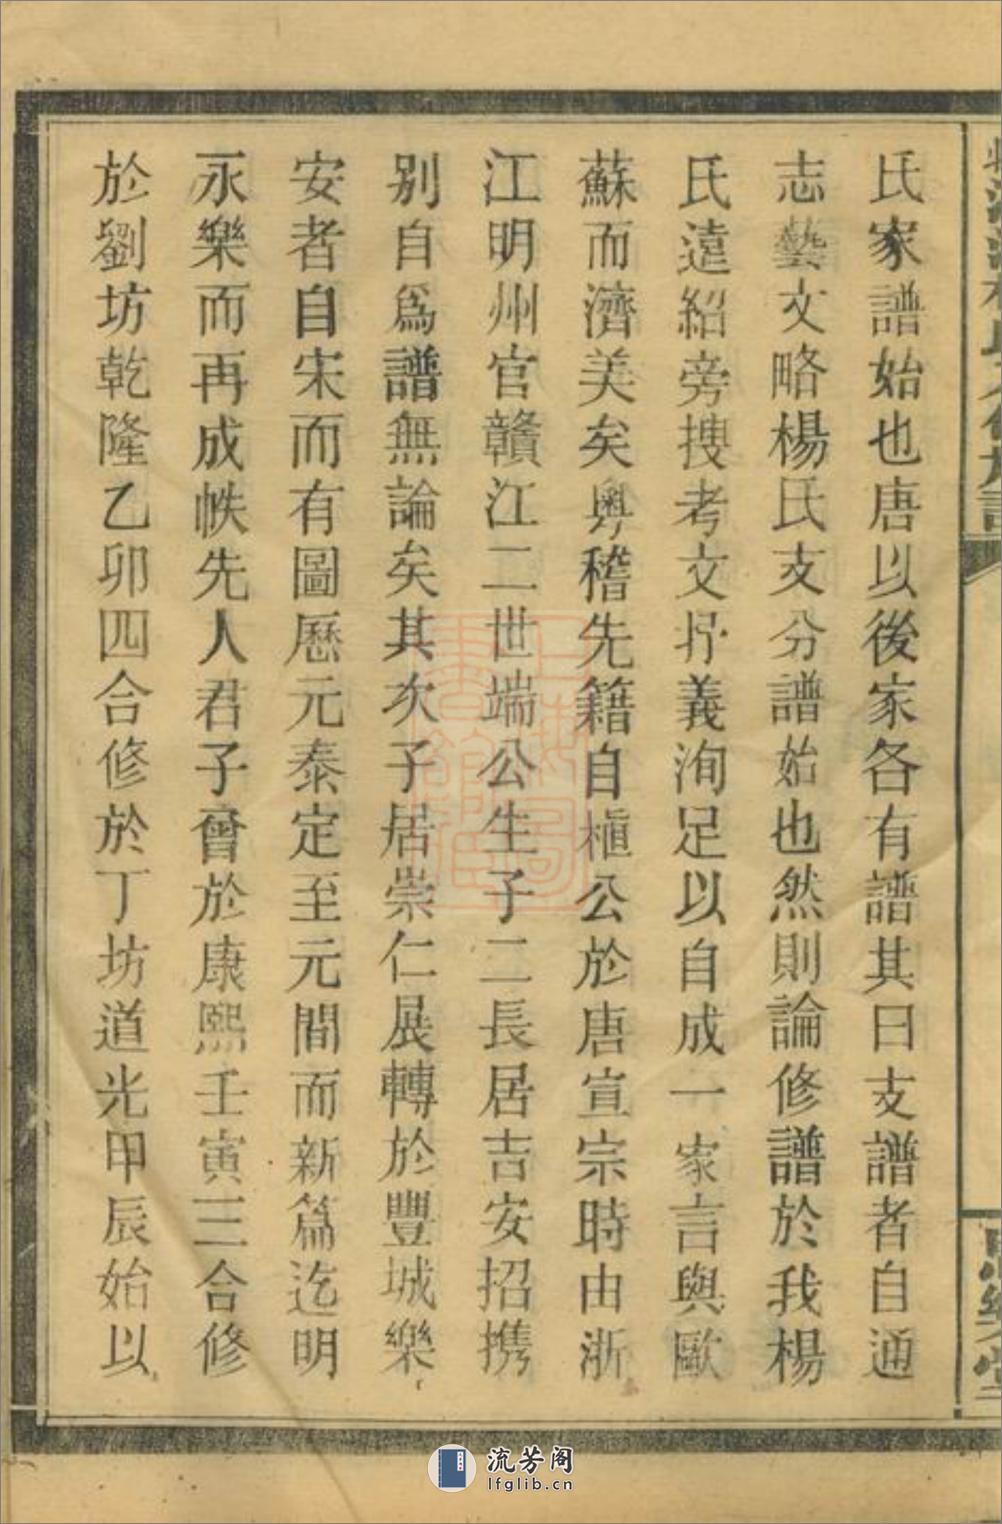 氏家譜始也唐以後家各有譜其曰支譜者自通
志藝文略楊氏支分譜始也然則論修譜於我楊
氏遠紹旁搜考文抒義洵足以自成一家言與歐
蘇而濟美矣粵稽先籍自楻公於唐宣宗時由浙
江明州官贛江二世端公生子二長居吉安招携
别自爲譜無論矣其次子居崇仁展轉於豐城樂
安者自宋而有圖歷元泰定至元間而新篇迄明
永樂而再成帙先人君子會於康熙壬寅三合修
於劉坊乾隆乙卯四合修於丁坊道光甲辰始以
流芳阁
lfglib.cn